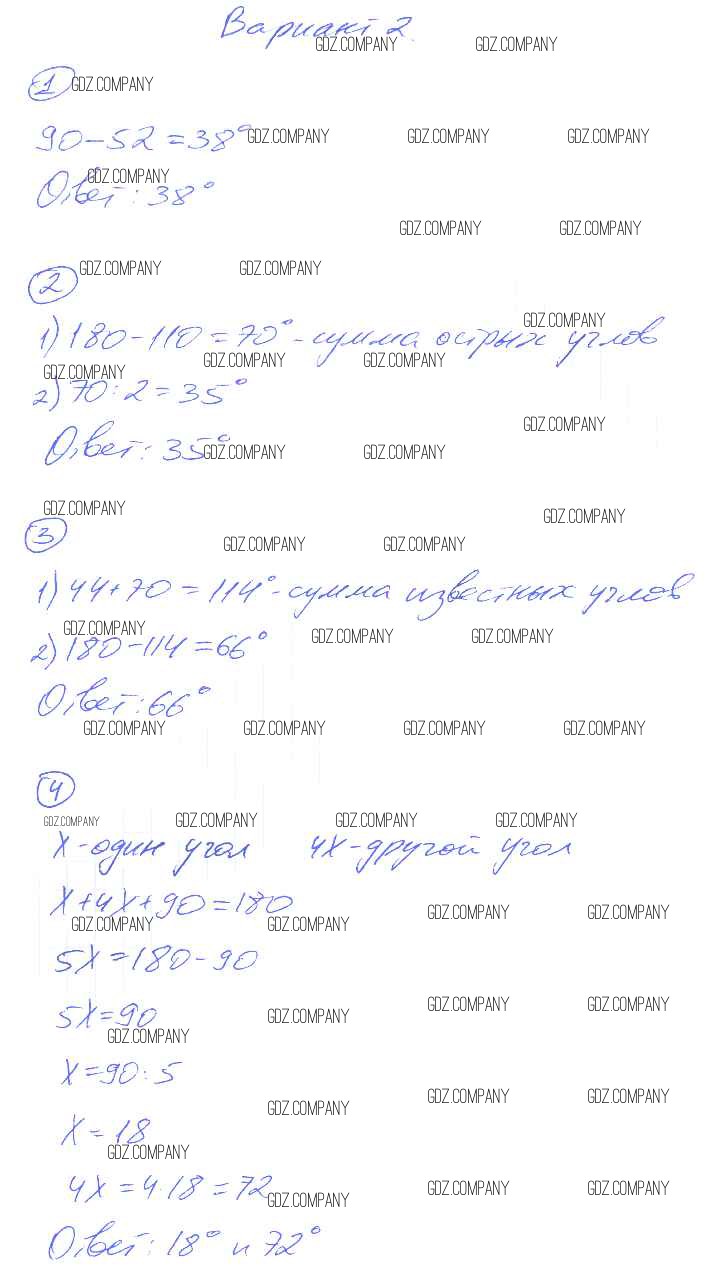 Вариант 2.
GDZ.COMPANY GDZ.COMPANY
1 GDZ.COMPANY
90-52=38° GDZ.COMPANY GDZ.COMPANY GDZ.COMPANY
GDZ.COMPANY
Ответ: 38°
GDZ.COMPANY GDZ.COMPANY
GDZ.COMPANY GDZ.COMPANY
2
GDZ.COMPANY
1) 180-110=70° - сумма острых углов
GDZ.COMPANY GDZ.COMPANY GDZ.COMPANY
2) 70:2=35°
GDZ.COMPANY
Ответ: 35° GDZ.COMPANY GDZ.COMPANY
GDZ.COMPANY GDZ.COMPANY
3
GDZ.COMPANY GDZ.COMPANY
1) 44+70=114° - сумма известных углов
GDZ.COMPANY GDZ.COMPANY GDZ.COMPANY
2) 180-114=66°
Ответ: 66°
GDZ.COMPANY GDZ.COMPANY GDZ.COMPANY GDZ.COMPANY
4
GDZ.COMPANY GDZ.COMPANY GDZ.COMPANY GDZ.COMPANY
X - один угол 4X - другой угол
X+4X+90=180
GDZ.COMPANY GDZ.COMPANY GDZ.COMPANY GDZ.COMPANY
5X=180-90
5X=90 GDZ.COMPANY GDZ.COMPANY GDZ.COMPANY
GDZ.COMPANY
X=90:5
GDZ.COMPANY GDZ.COMPANY GDZ.COMPANY
X=18
GDZ.COMPANY
4X=4·18=72 GDZ.COMPANY GDZ.COMPANY GDZ.COMPANY
Ответ: 18° и 72°